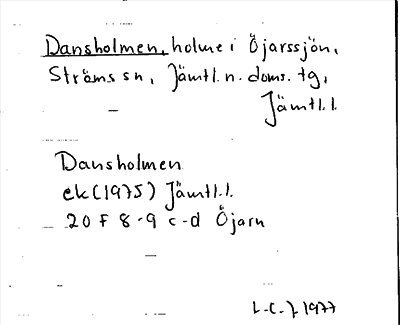 Dansholmen, holme i Öjarssjön,
Ströms sn, Jämtl. n. doms. tg,
Jämtl.l.
Dansholmen
ek (1975) Jämtl.l.
20 F 8-9 c-d Öjarn
L-C.J 1977